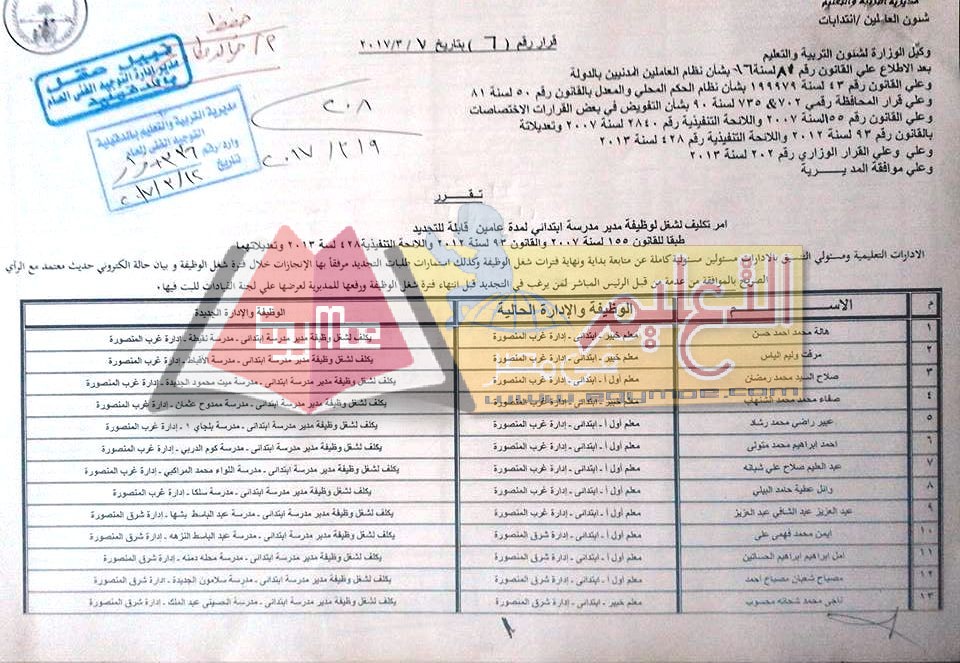 مديرية التربية والتعليم
شئون العاملين /انتدابات
قرار رقم (٦) بتاريخ ٢٠١٧/٣/٧
وكيل الوزارة لشئون التربية والتعليم
بعد الاطلاع علي القانون رقم ٨١ لسنة ٢٠١٦ بشأن نظام العاملين المدنيين بالدولة
وعلي القانون رقم ٤٣ لسنة ١٩٩٩٧٩ بشأن نظام الحكم المحلي والمعدل بالقانون رقم ٥٠ لسنة ٨١
وعلي قرار المحافظة رقمي ٧٠٢، ٧٣٥ لسنة ٩٠ بشأن التفويض في بعض القرارات الاختصاصات
وعلي القانون ١٥٥ لسنة ٢٠٠٧ واللائحة التنفيذية رقم ٢٨٤٠ لسنة ٢٠٠٧ وتعديلاتة
بالقانون رقم ٩٣ لسنة ٢٠١٢ واللائحة التنفيذية رقم ٤٢٨ لسنة ٢٠١٣
وعلي وعلي القرار الوزاري رقم ٢٠٢ لسنة ٢٠١٣
وعلي موافقة المديرية
نبيل صقر
مدير إدارة التوجيه الفني العام
مديرية التربية والتعليم بالدقهلية
التوجيه الفني العام
وارد رقم
تاريخ ٢٠١٧/٣/١٢
٢٠٨
٢٠١٧/٣/٩
تقرر
امر تكليف لشغل لوظيفة مدير مدرسة ابتدائي لمدة عامين قابلة للتجديد
طبقا للقانون ١٥٥ لسنة ٢٠٠٧ والقانون ٩٣ لسنة ٢٠١٢ واللائحة التنفيذية ٤٢٨ لسة ٢٠١٣ وتعديلاتهما
الادارات التعليمية ومسئولي بالادارات مسئولين مسئولية كاملة عن متابعة بداية ونهاية فترات شغل الوظيفة وكذلك استمارات طلبات التجديد مرفقاً بها الإنجازات خلال فترة شغل الوظيفة و بيان حالة الكتروني حديث معتمد مع الرأي
الصريح بالموافقة من عدمة من قبل الرئيس المباشر لمن يرغب في التجديد قبل انتهاء فترة شغل الوظيفة ورفعها للمديرية لعرضها علي لجنة القيادات للبت فيها.
م الاســـم الوظيفة والإدارة الحالية الوظيفة والإدارة الجديدة
١ هالة محمد احمد حسن معلم خبير - ابتدائى - إدارة غرب المنصورة يكلف لشغل وظيفة مدير مدرسة ابتدائى - مدرسة نقيطة - إدارة غرب المنصورة
٢ مرفت وليم الياس معلم خبير - ابتدائى - إدارة غرب المنصورة يكلف لشغل وظيفة مدير مدرسة ابتدائى - مدرسة الأقباط - إدارة غرب المنصورة
٣ صلاح السيد محمد رمضان معلم أول أ - ابتدائى - إدارة غرب المنصورة يكلف لشغل وظيفة مدير مدرسة ابتدائى - مدرسة ميت محمود الجديدة - إدارة غرب المنصورة
٤ صفاء محمد محمد معلم خبير - ابتدائى - إدارة غرب المنصورة يكلف لشغل وظيفة مدير مدرسة ابتدائى - مدرسة ممدوح عثمان - إدارة غرب المنصورة
٥ عبير راضي محمد رشاد معلم أول أ - ابتدائى - إدارة غرب المنصورة يكلف لشغل وظيفة مدير مدرسة ابتدائى - مدرسة بلجاي ١ - إدارة غرب المنصورة
٦ احمد إبراهيم محمد متولى معلم أول أ - ابتدائى - إدارة غرب المنصورة يكلف لشغل وظيفة مدير مدرسة ابتدائى - مدرسة كوم الدربي - إدارة غرب المنصورة
٧ عبد العليم صلاح علي شبانه معلم أول أ - ابتدائى - إدارة غرب المنصورة يكلف لشغل وظيفة مدير مدرسة ابتدائى - مدرسة اللواء محمد المراكبي - إدارة غرب المنصورة
٨ وائل عطية حامد البيلي معلم أول أ - ابتدائى - إدارة غرب المنصورة يكلف لشغل وظيفة مدير مدرسة ابتدائى - مدرسة سلكا - إدارة غرب المنصورة
٩ عبد العزيز عبد الشافي عبد العزيز معلم أول أ - ابتدائى - إدارة شرق المنصورة يكلف لشغل وظيفة مدير مدرسة ابتدائى - مدرسة عبد الباسط بشها - إدارة شرق المنصورة
١٠ ايمن محمد فهمى على معلم أول أ - ابتدائى - إدارة شرق المنصورة يكلف لشغل وظيفة مدير مدرسة ابتدائى - مدرسة عبد الباسط النزهه - إدارة شرق المنصورة
١١ امل ابراهيم ابراهيم الحسانين معلم أول أ - ابتدائى - إدارة شرق المنصورة يكلف لشغل وظيفة مدير مدرسة ابتدائى - مدرسة محله دمنه - إدارة شرق المنصورة
١٢ مصباح شعبان مصباح احمد معلم أول أ - ابتدائى - إدارة شرق المنصورة يكلف لشغل وظيفة مدير مدرسة ابتدائى - مدرسة سلامون الجديدة - إدارة شرق المنصورة
١٣ ناجى محمد شحاته محسوب معلم خبير - ابتدائى - إدارة شرق المنصورة يكلف لشغل وظيفة مدير مدرسة ابتدائى - مدرسة الحسينى عبد الملك - إدارة شرق المنصورة
التعليم
مصر